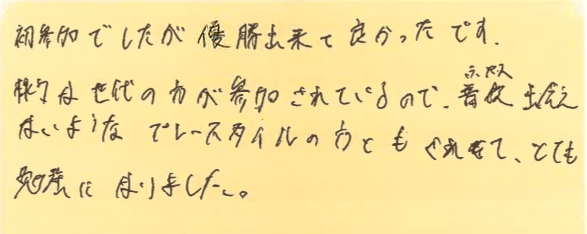 初参加でしたが優勝出来て良かったです.
様々な世代の方が参加されているので、普段出会え
ないようなプレースタイルの方とも くれて、とても
勉強になりました。